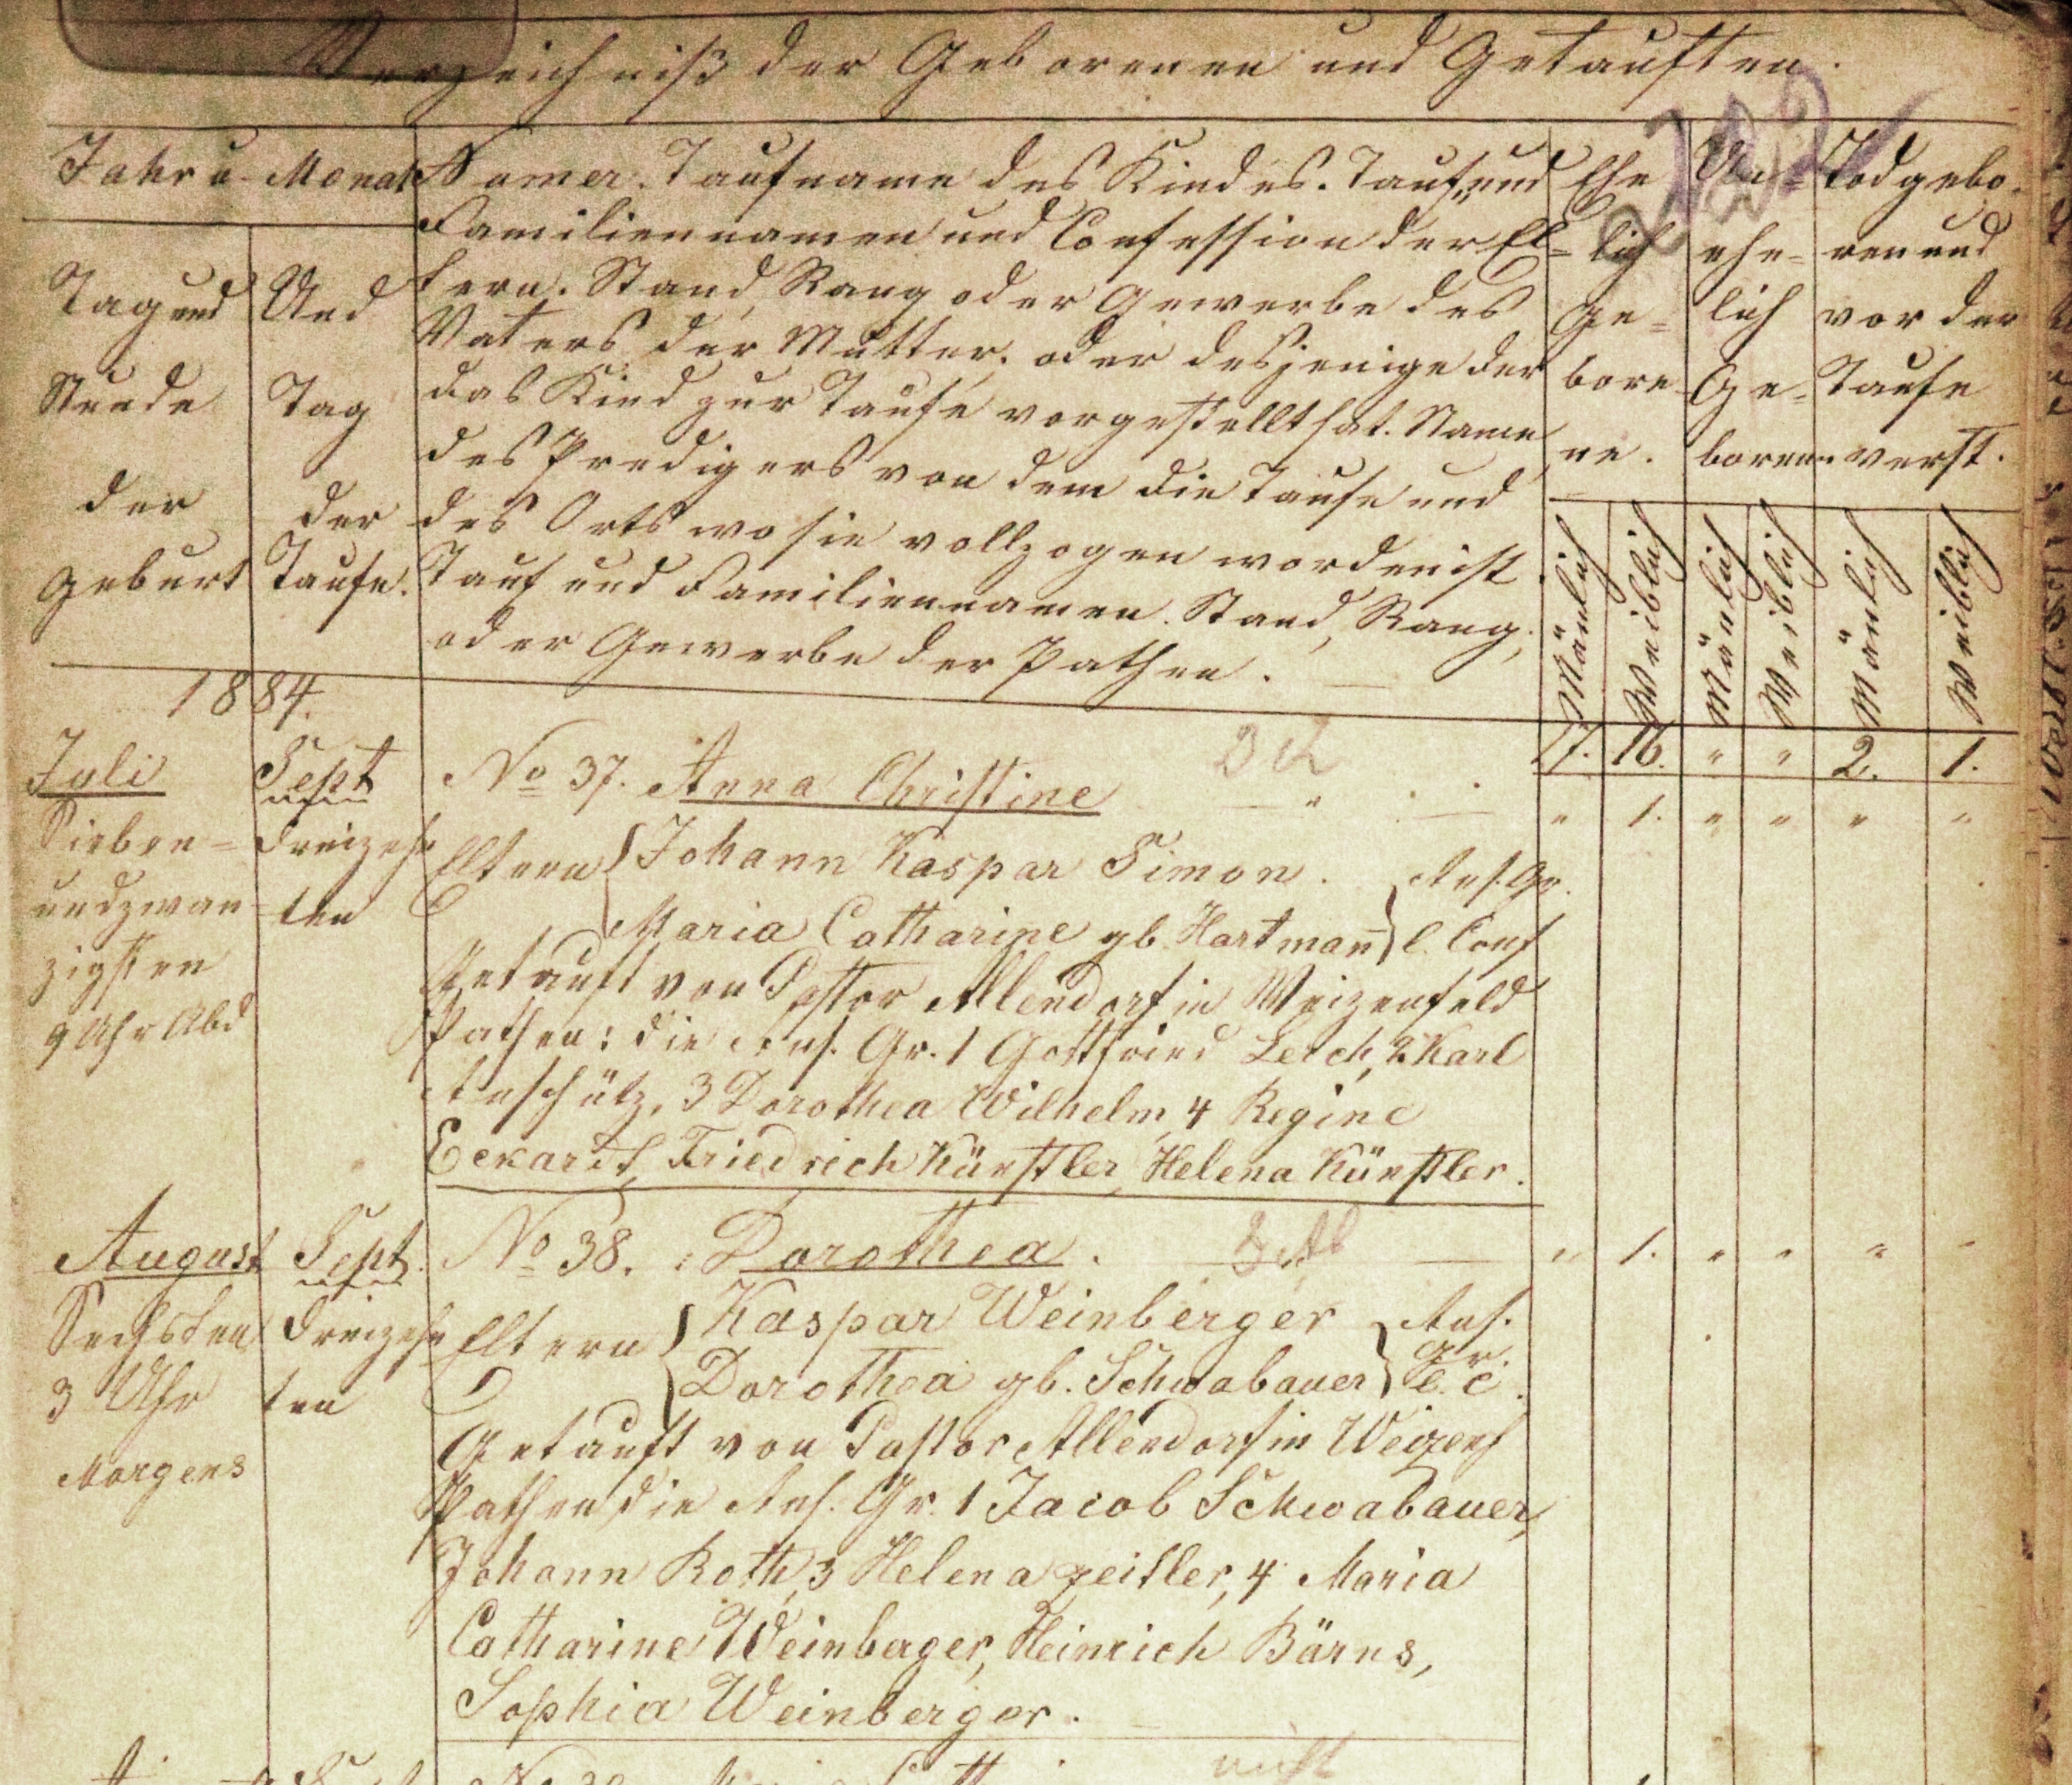 Verzeichniß der Geborenen und Getauften.
Jahr u. Monat
Tag und
Stunde
der
Geburt
Und
Tag
der
Taufe.
Numer. Taufname des Kindes. Tauf und
Familiennamen und Confession der El=
tern. Stand, Rang oder Gewerbe des
Vaters der Mutter, oder desjenige der
das Kind zur Taufe vorgestellt hat. Name
des Predigers von dem die Taufe und
des Orts wo sie vollzogen worden ist
Tauf und Familiennamen. Stand, Rang,
oder Gewerbe der Pathen.
Ehe
lich
Ge=
bore
ne.
Un=
ehe=
lich
Ge=
boren.
Todgebo.
ren und
vor der
Taufe
verst.
Mänlich
Weiblich
Mänlich
Weiblich
Mänlich
Weiblich
1884.
17. 16. " " 2. 1.
Juli
Sieben=
undzwan
zigsten
9 Uhr Abd
Sept
Dreizehn
ten
No 37. Anna Christine
" 1. " " " "
Eltern { Johann Kaspar Simon. } Ans. Gr.
Maria Catharine gb. Hartman l. Conf
Getauft von Pastor Allendorf in Weizenfeld
Pathen: die Ans. Gr. 1 Gottfried Lerch, 2 Karl
Anschütz, 3 Dorothea Wilhelm, 4 Regine
Eckardt, Friedrich Künstler, Helena Künstler.
August
Sechsten
3 Uhr
Morgens
Sept.
Dreizehn
ten
No 38. Dorothea.
" 1. " " " "
Eltern { Kaspar Weinberger } Ans.
Gr.
Dorothea gb. Schwabauer l. C.
Getauft von Pastor Allendorf in Weizenf
Pathen die Ans. Gr. 1 Jacob Schwabauer,
Johann Roth, 3 Helena Zeitler, 4 Maria
Catharine Weinberger, Heinrich Bärns,
Sophia Weinberger.